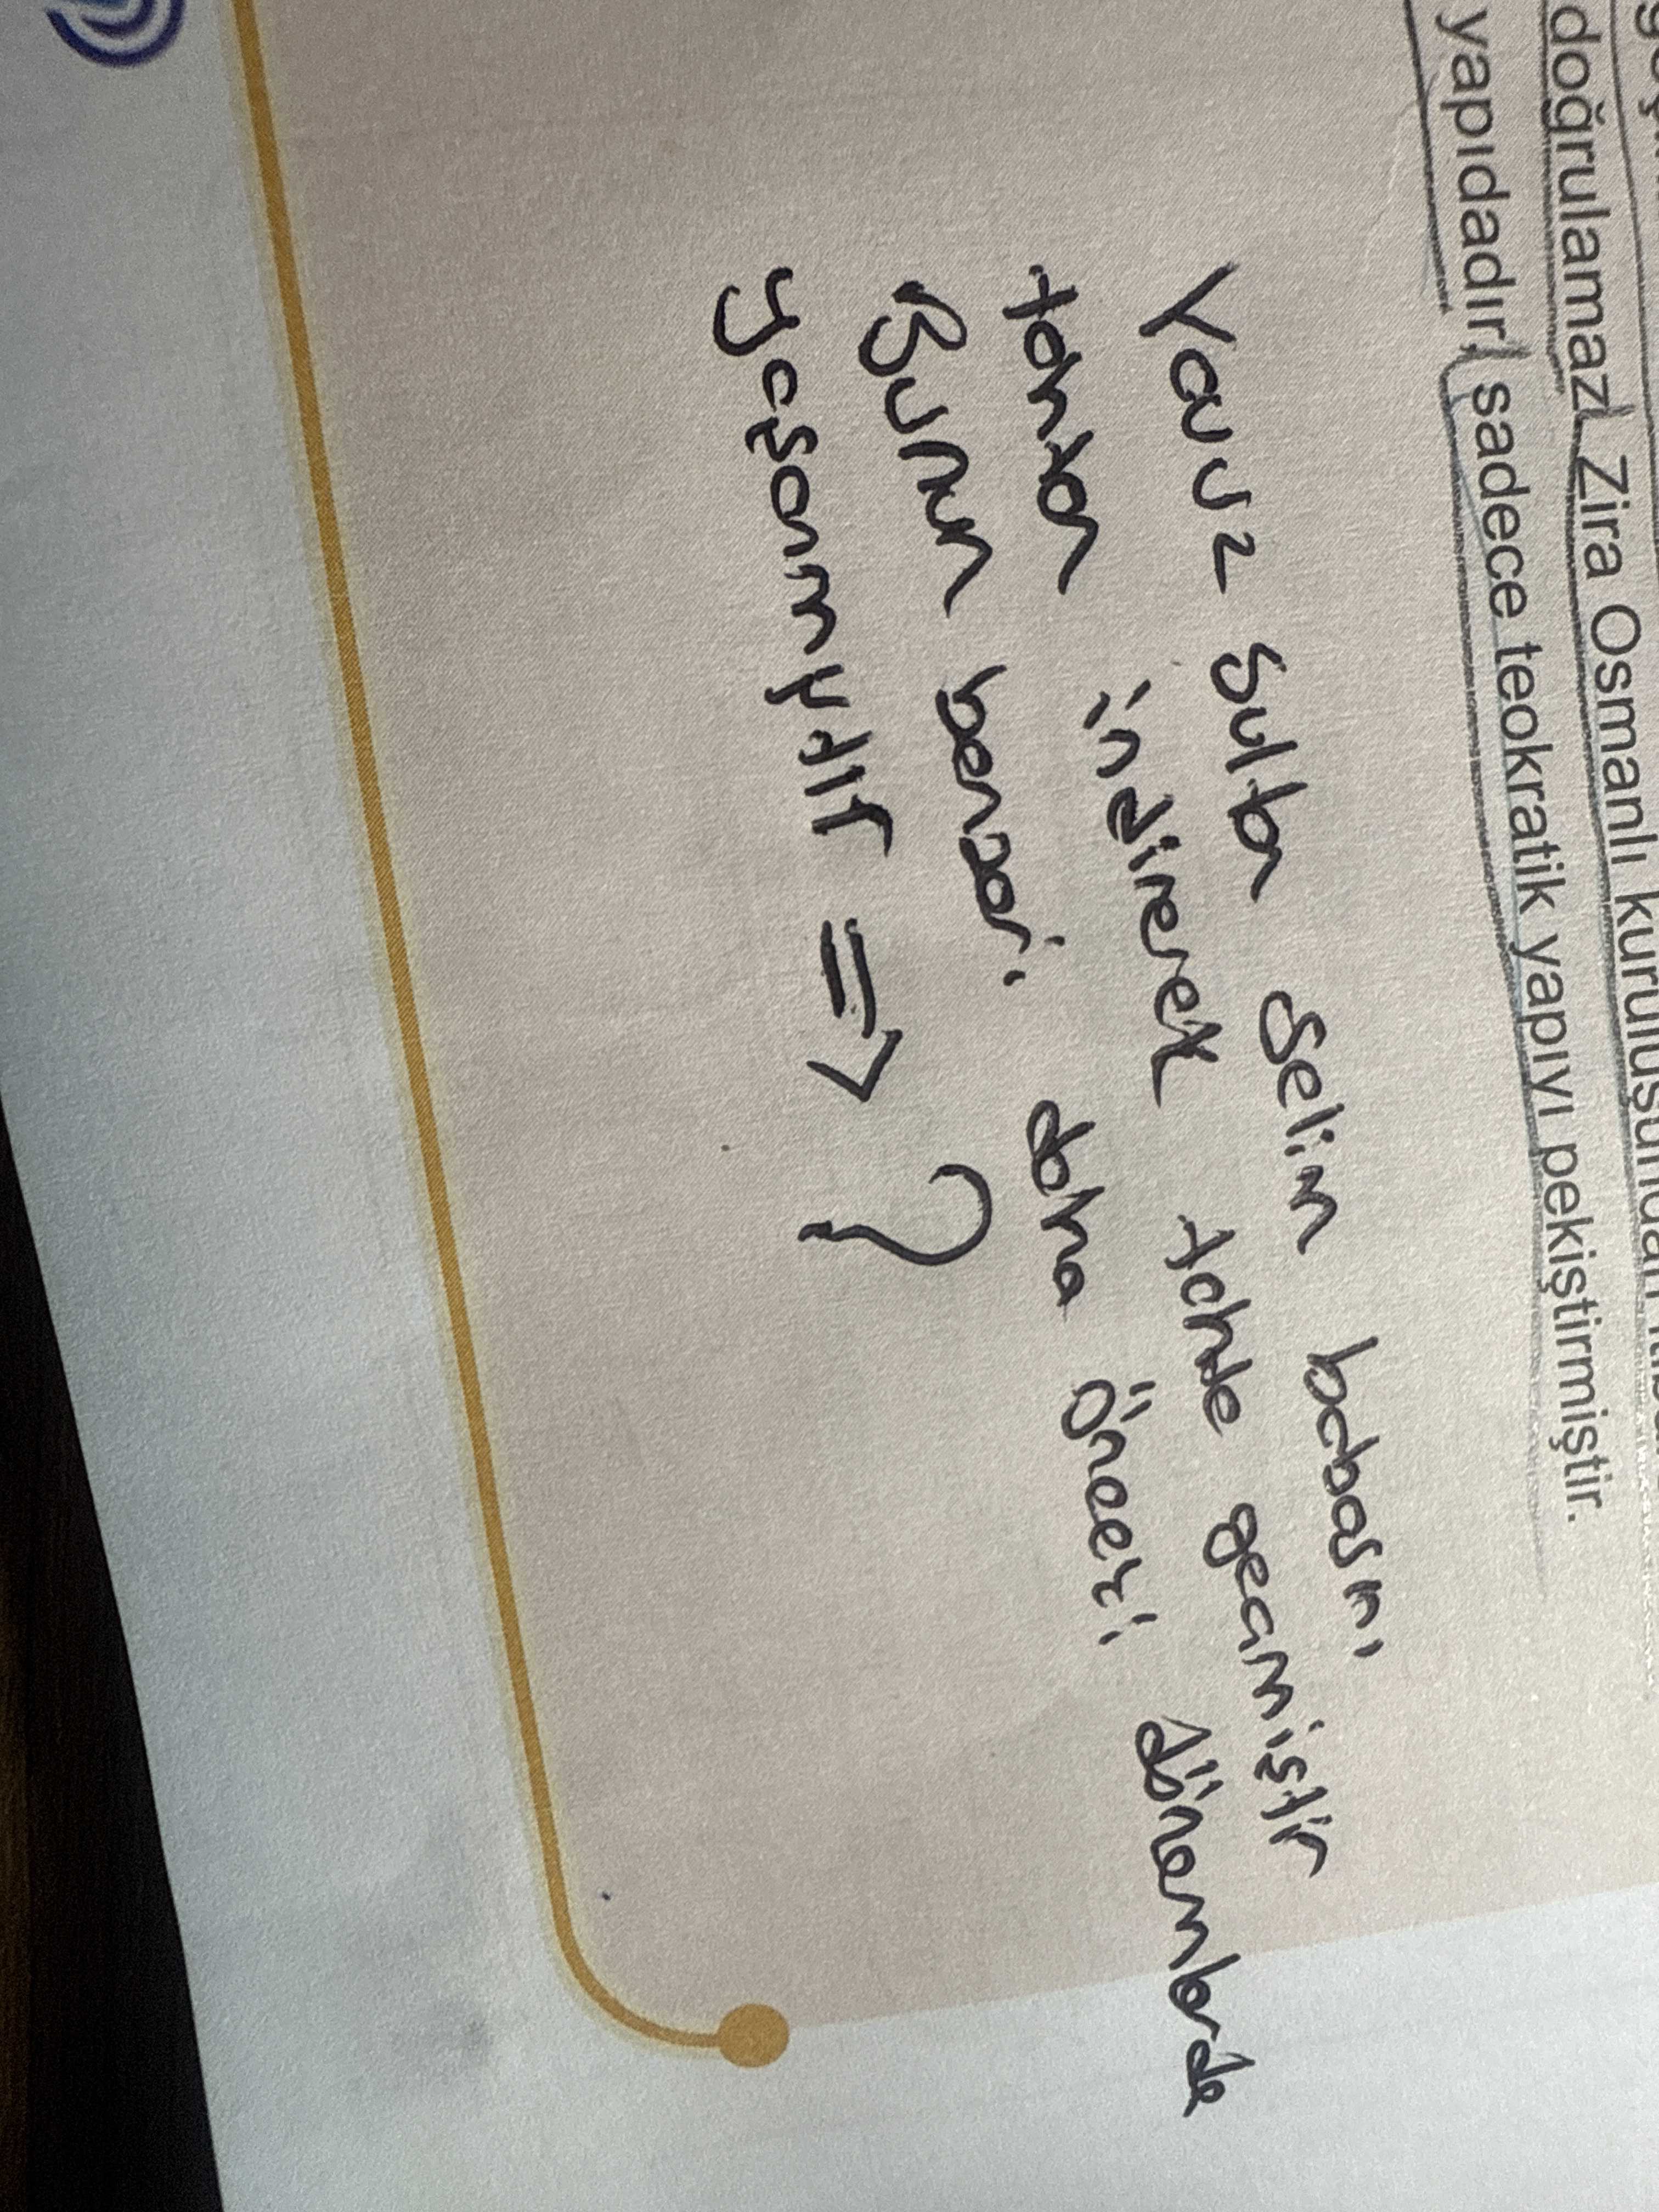 doğrulamaz. Zira Osmanlı kuruluşundan
yapıdadır, sadece teokratik yapıyı pekiştirmiştir.
Yavuz sultan selim babasını
tahttan indirerek tahta geçmiştir
Bunun benzeri daha önceki dönemlerde
yaşanmıştır => ?